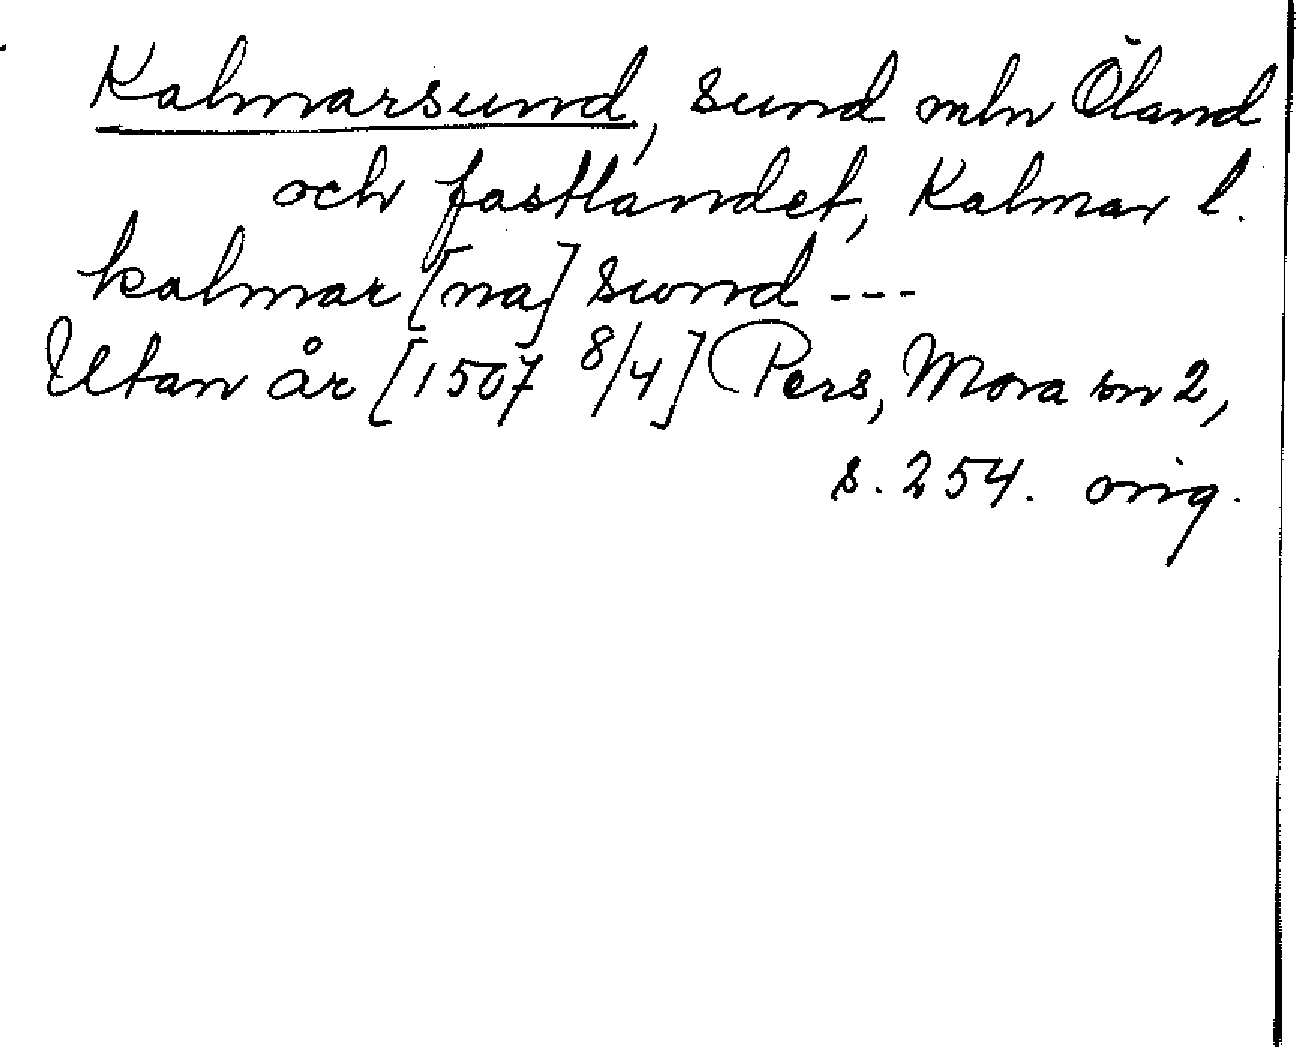 Kalmarsund, sund mln Öland
och fastlandet, Kalmar l.
kalmar [na] sund ---
Utan år [1507 8/4] Pers, Mora bn 2,
s. 254. orig.